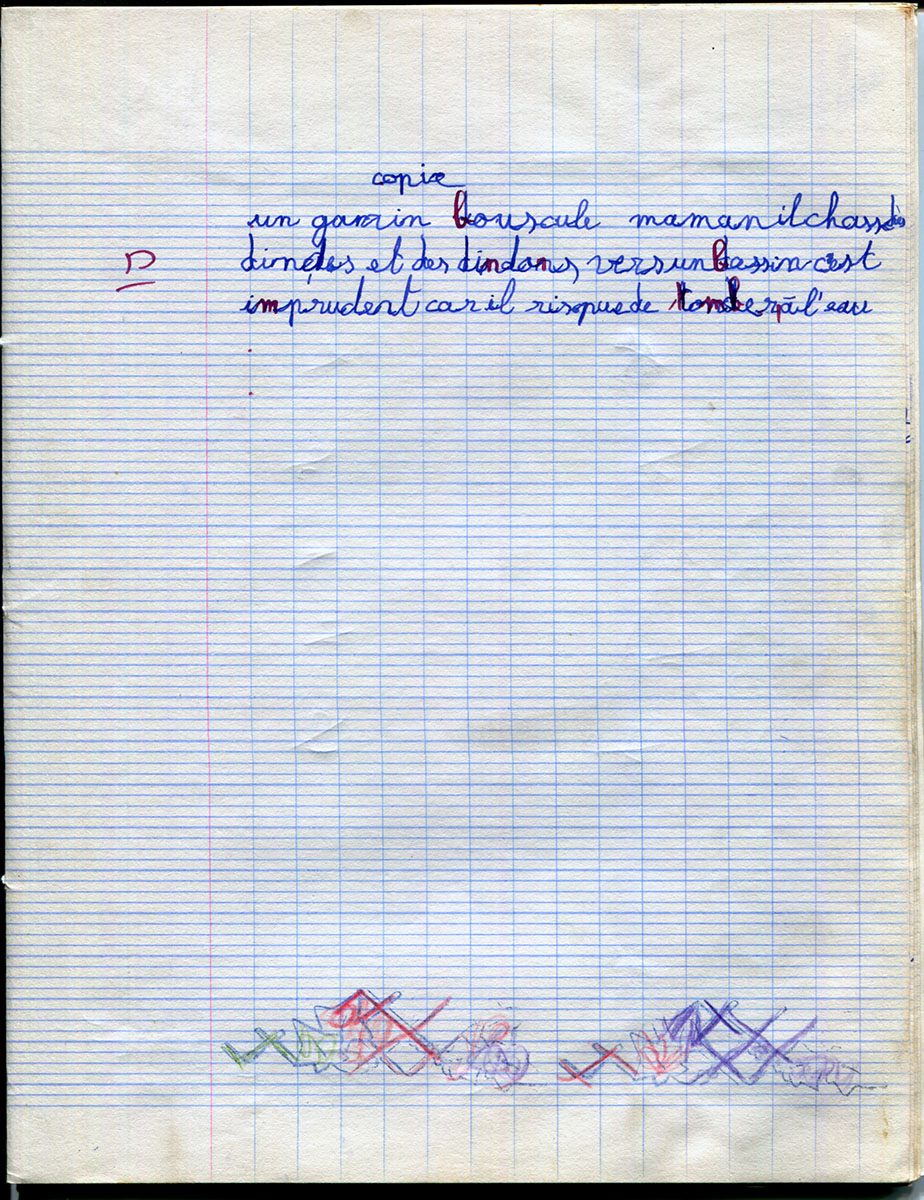 copie
un gamin bouscule maman il chasse des
dindes et des dindons, vers un bassin c'est
D
imprudent car il risque de tomber à l'eau